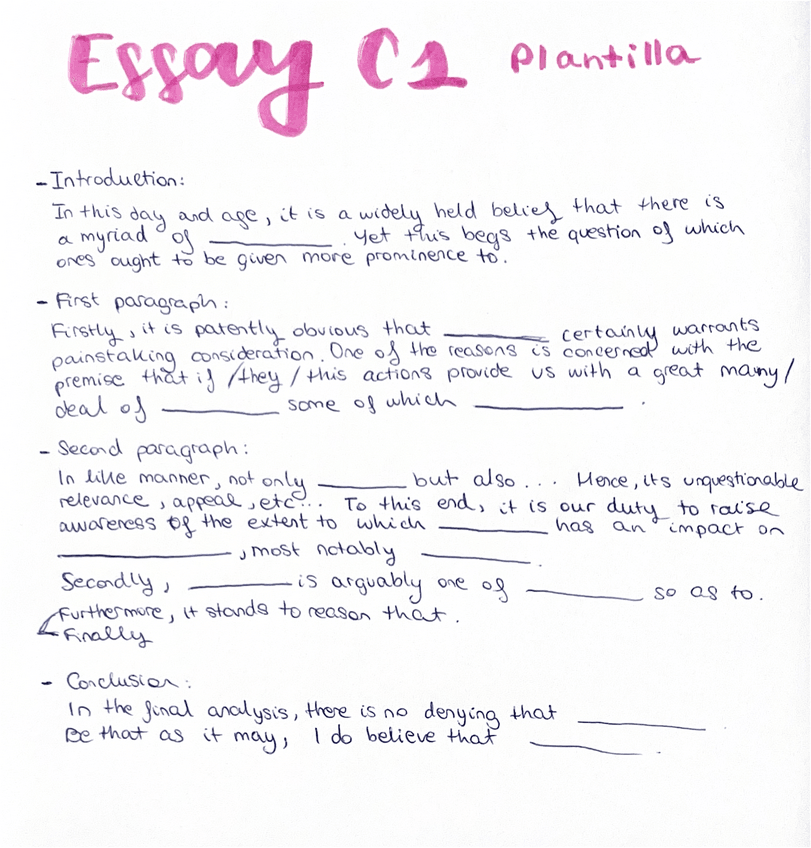 Essay C1 Plantilla
- Introduction:
In this day and age, it is a widely held belief that there is
a myriad of ________. Yet this begs the question of which
ones ought to be given more prominence to.
- First paragraph:
Firstly, it is patently obvious that ________ certainly warrants
painstaking consideration. One of the reasons is concerned with the
premise that if /they/this actions provide us with a great many/
deal of ________ some of which ________.
- Second paragraph:
In like manner, not only ________ but also... Hence, its unquestionable
relevance, appeal, etc... To this end, it is our duty to raise
awareness of the extent to which ________ has an impact on
________, most notably ________.
Secondly, ________ is arguably one of ________ so as to.
Furthermore, it stands to reason that.
Finally
- Conclusion:
In the final analysis, there is no denying that ________.
Be that as it may, I do believe that ________.